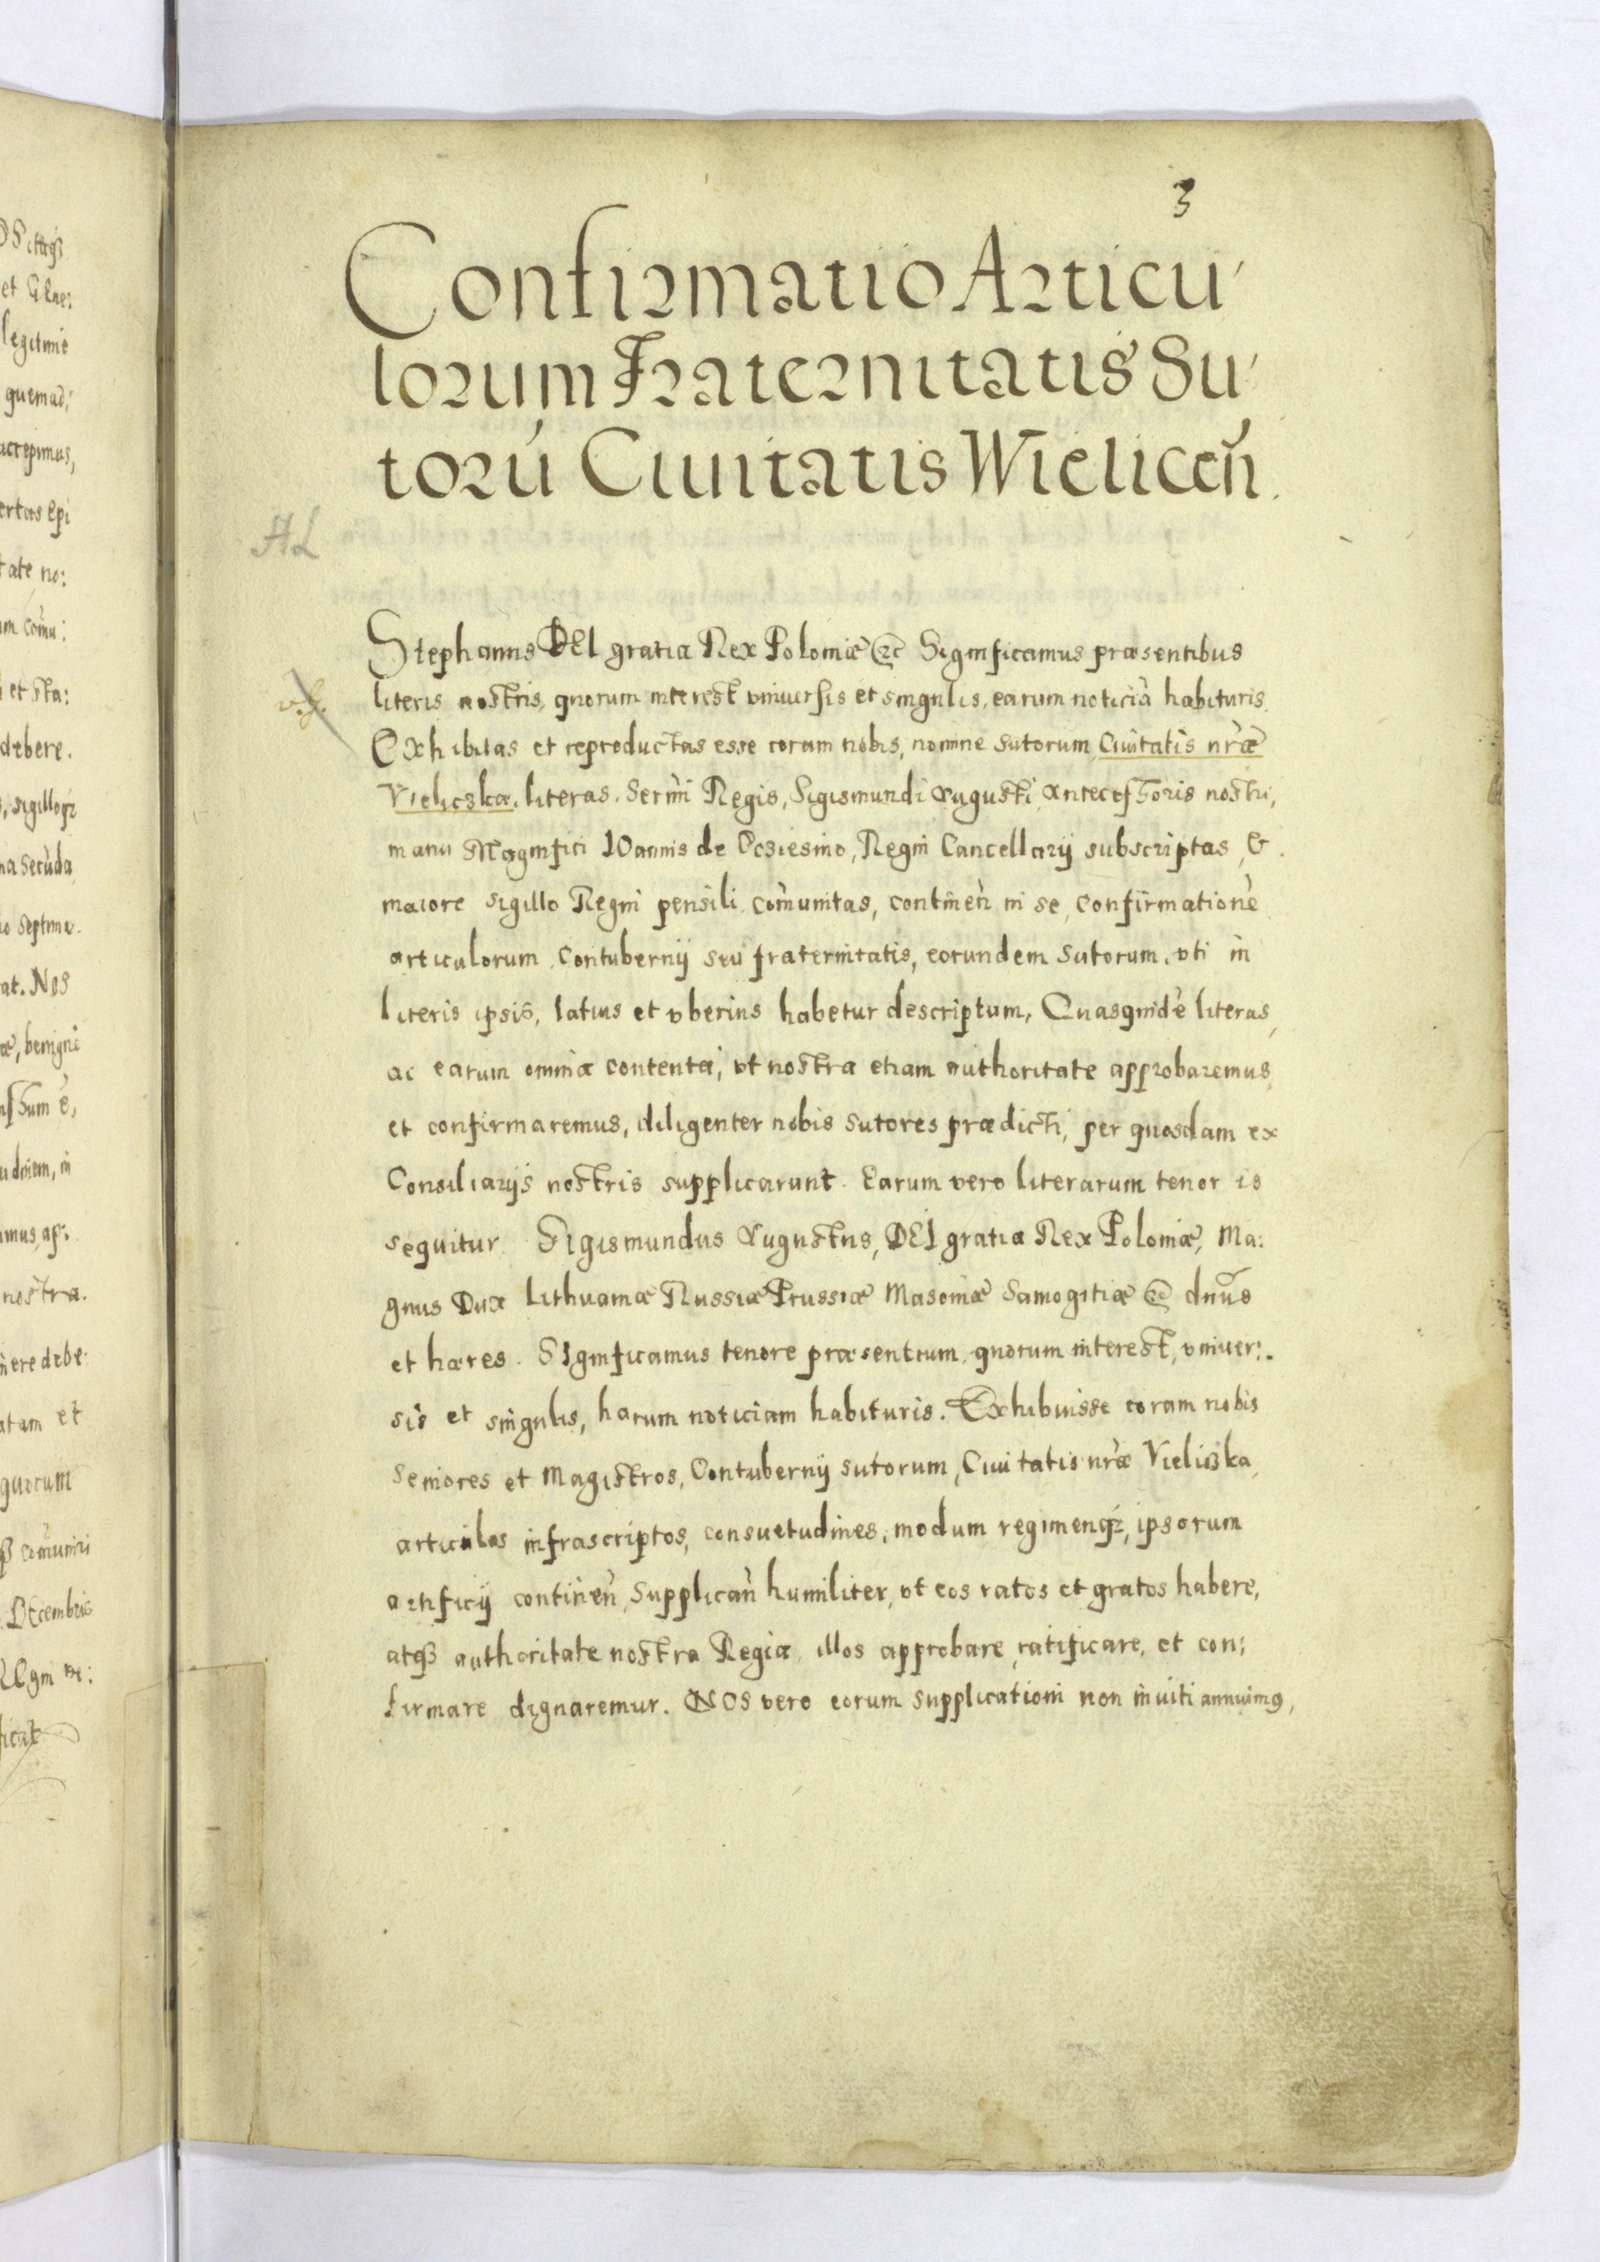 3
Confirmatio Articu
lorum Fraternitatis Su
torū Ciuitatis Wielicen̄.
AL
Stephanus DEI gratia Rex Poloniæ &c Significamus præsentibus
literis nostris, quorum interest vniuersis et singulis, earum noticiā habituris.
Exhibitas et reproductas esse coram nobis, nomine Sutorum Ciuitatis nræ
Vielicskæ, literas. Sermi Regis, Sigismundi Augusti, Antecessoris nostri,
manu Magnifici IOannis de Ocsiesino, Regni Cancellarij subscriptas, &
maiore sigillo Regni pensili com̄unitas, continen̄ in se, confirmationē
articulorum, Contubernij seu fraternitatis, eorundem Sutorum, vti in
literis ipsis, latius et vberius habetur descriptum, Quasquidē literas,
ac earum omnia contenta, vt nostra etiam authoritate approbaremus,
et confirmaremus, diligenter nobis Sutores prædicti, per quosdam ex
Consiliarijs nostris supplicarunt. Earum vero literarum tenor is
sequitur. Sigismundus Augustus, DEI gratia Rex Poloniæ, Ma:
gnus Dux Lithuaniæ Russiæ Prussiæ Masoniæ Samogitiæ &c dnūs
et hæres. SIgnificamus tenore præsentium, quorum interest, vniuer:
sis et singulis, harum noticiam habituris. Exhibuisse coram nobis
Seniores et Magistros, Contubernij sutorum, Ciuitatis nræ Vieliczka,
articulos infrascriptos, consuetudines, modum regimenq;, ipsorum
artificij continen̄, Supplican̄ humiliter, vt eos ratos et gratos habere,
atq; authoritate nostra Regia, illos approbare, ratificare, et con:
firmare dignaremur. NOS vero eorum supplicationi non inuiti annuimq,